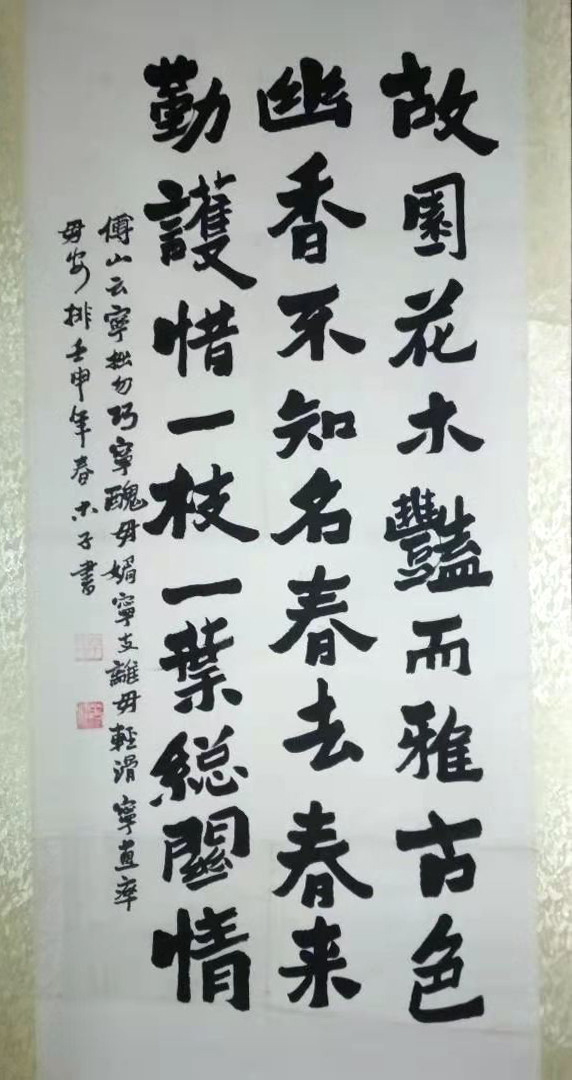 故園花木豔而雅古色
幽香不知名春去春来
勤護惜一枝一葉総關情
傅山云寧拙勿巧寧醜毋媚寧支離毋輕滑寧直率
毋安排壬申年春木子書